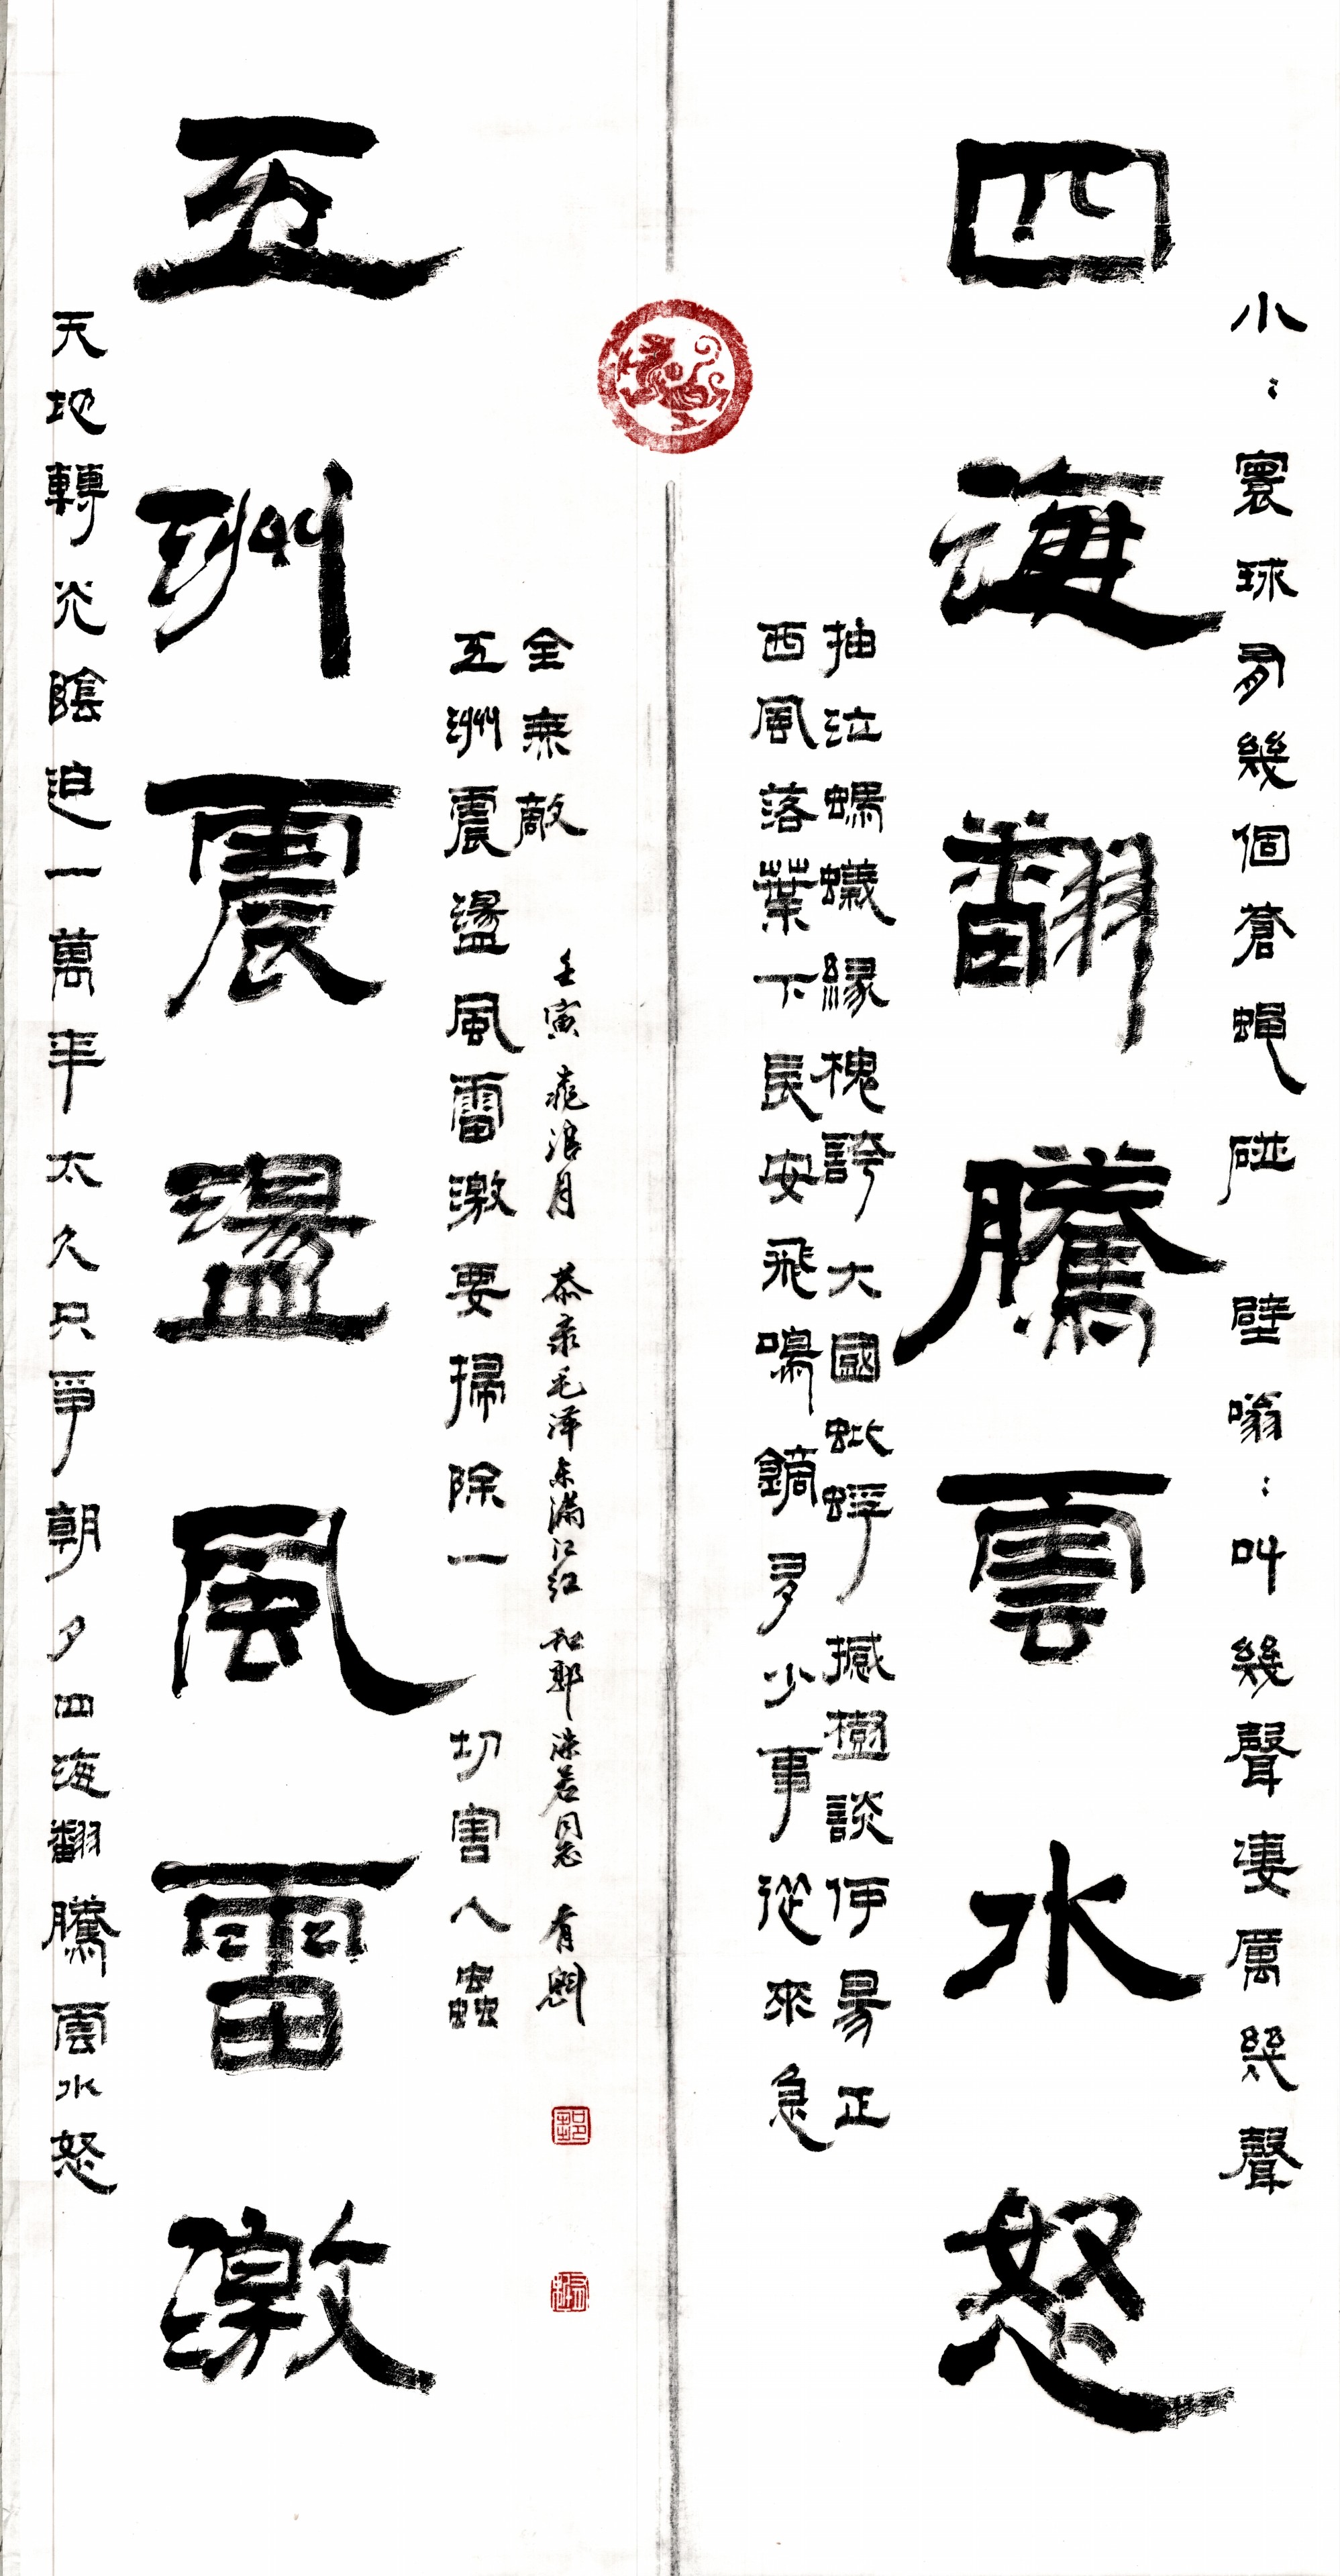 小：寰球有幾個蒼蠅碰壁嗡：叫幾聲凄厲幾聲
四海翻騰雲水怒
抽泣螞蟻緣槐誇大國蚍蜉撼樹談何易正
西風落葉下長安飛鳴鏑多少事從來急
天地轉光陰迫一萬年太久只爭朝夕四海翻騰雲水怒
五洲震盪風雷激
五洲震盪風雷激要掃除一切害人蟲
全無敵
壬寅 桃浪月 恭录毛泽东满江红 和郭沫若同志 有魁